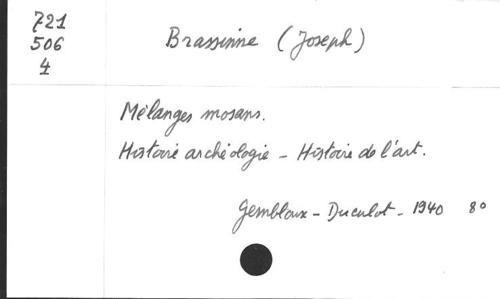 721
506
4
Brassinne (Joseph)
Mélanges mosans.
Histoire archéologie - Histoire de l'art.
Gembloux - Duculot - 1940 8º